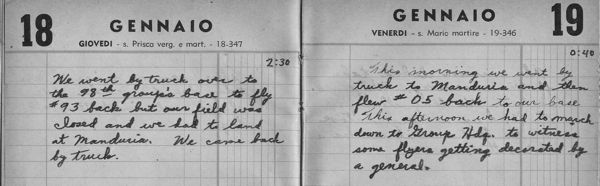 18
GENNAIO
GIOVEDI - s. Prisca verg. e mart. - 18-347
2:30
We went by truck over to
the 98th group's base to fly
#93 back but our field was
closed and we had to land
at Manduria. We came back
by truck.
GENNAIO
19
VENERDI - s. Mario martire - 19-346
0:40
This morning we went by
truck to Manduria and then
flew #05 back to our base
This afternoon we had to march
down to Group Hdq. to witness
some flyers getting decorated by
a general.